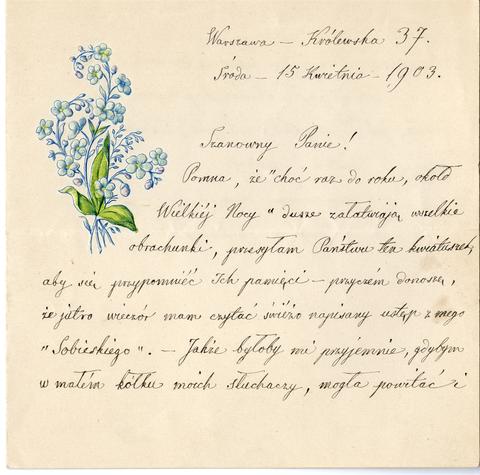 Warszawa – Królewska 37.
Środa – 15 Kwietnia – 1903.
Szanowny Panie!
Pomna, że "choć raz do roku, około
Wielkiéj Nocy" dusze załatwiają wszelkie
obrachunki, przesyłam Państwu ten kwiatuszek,
aby się przypomnieć Ich pamięci – przyczém donoszę,
że jutro wieczór mam czytać świéżo napisany ustęp z mego
"Sobieskiego". – Jakże byłoby mi przyjemnie, gdybym
w małém kółku moich słuchaczy, mogła powitać i